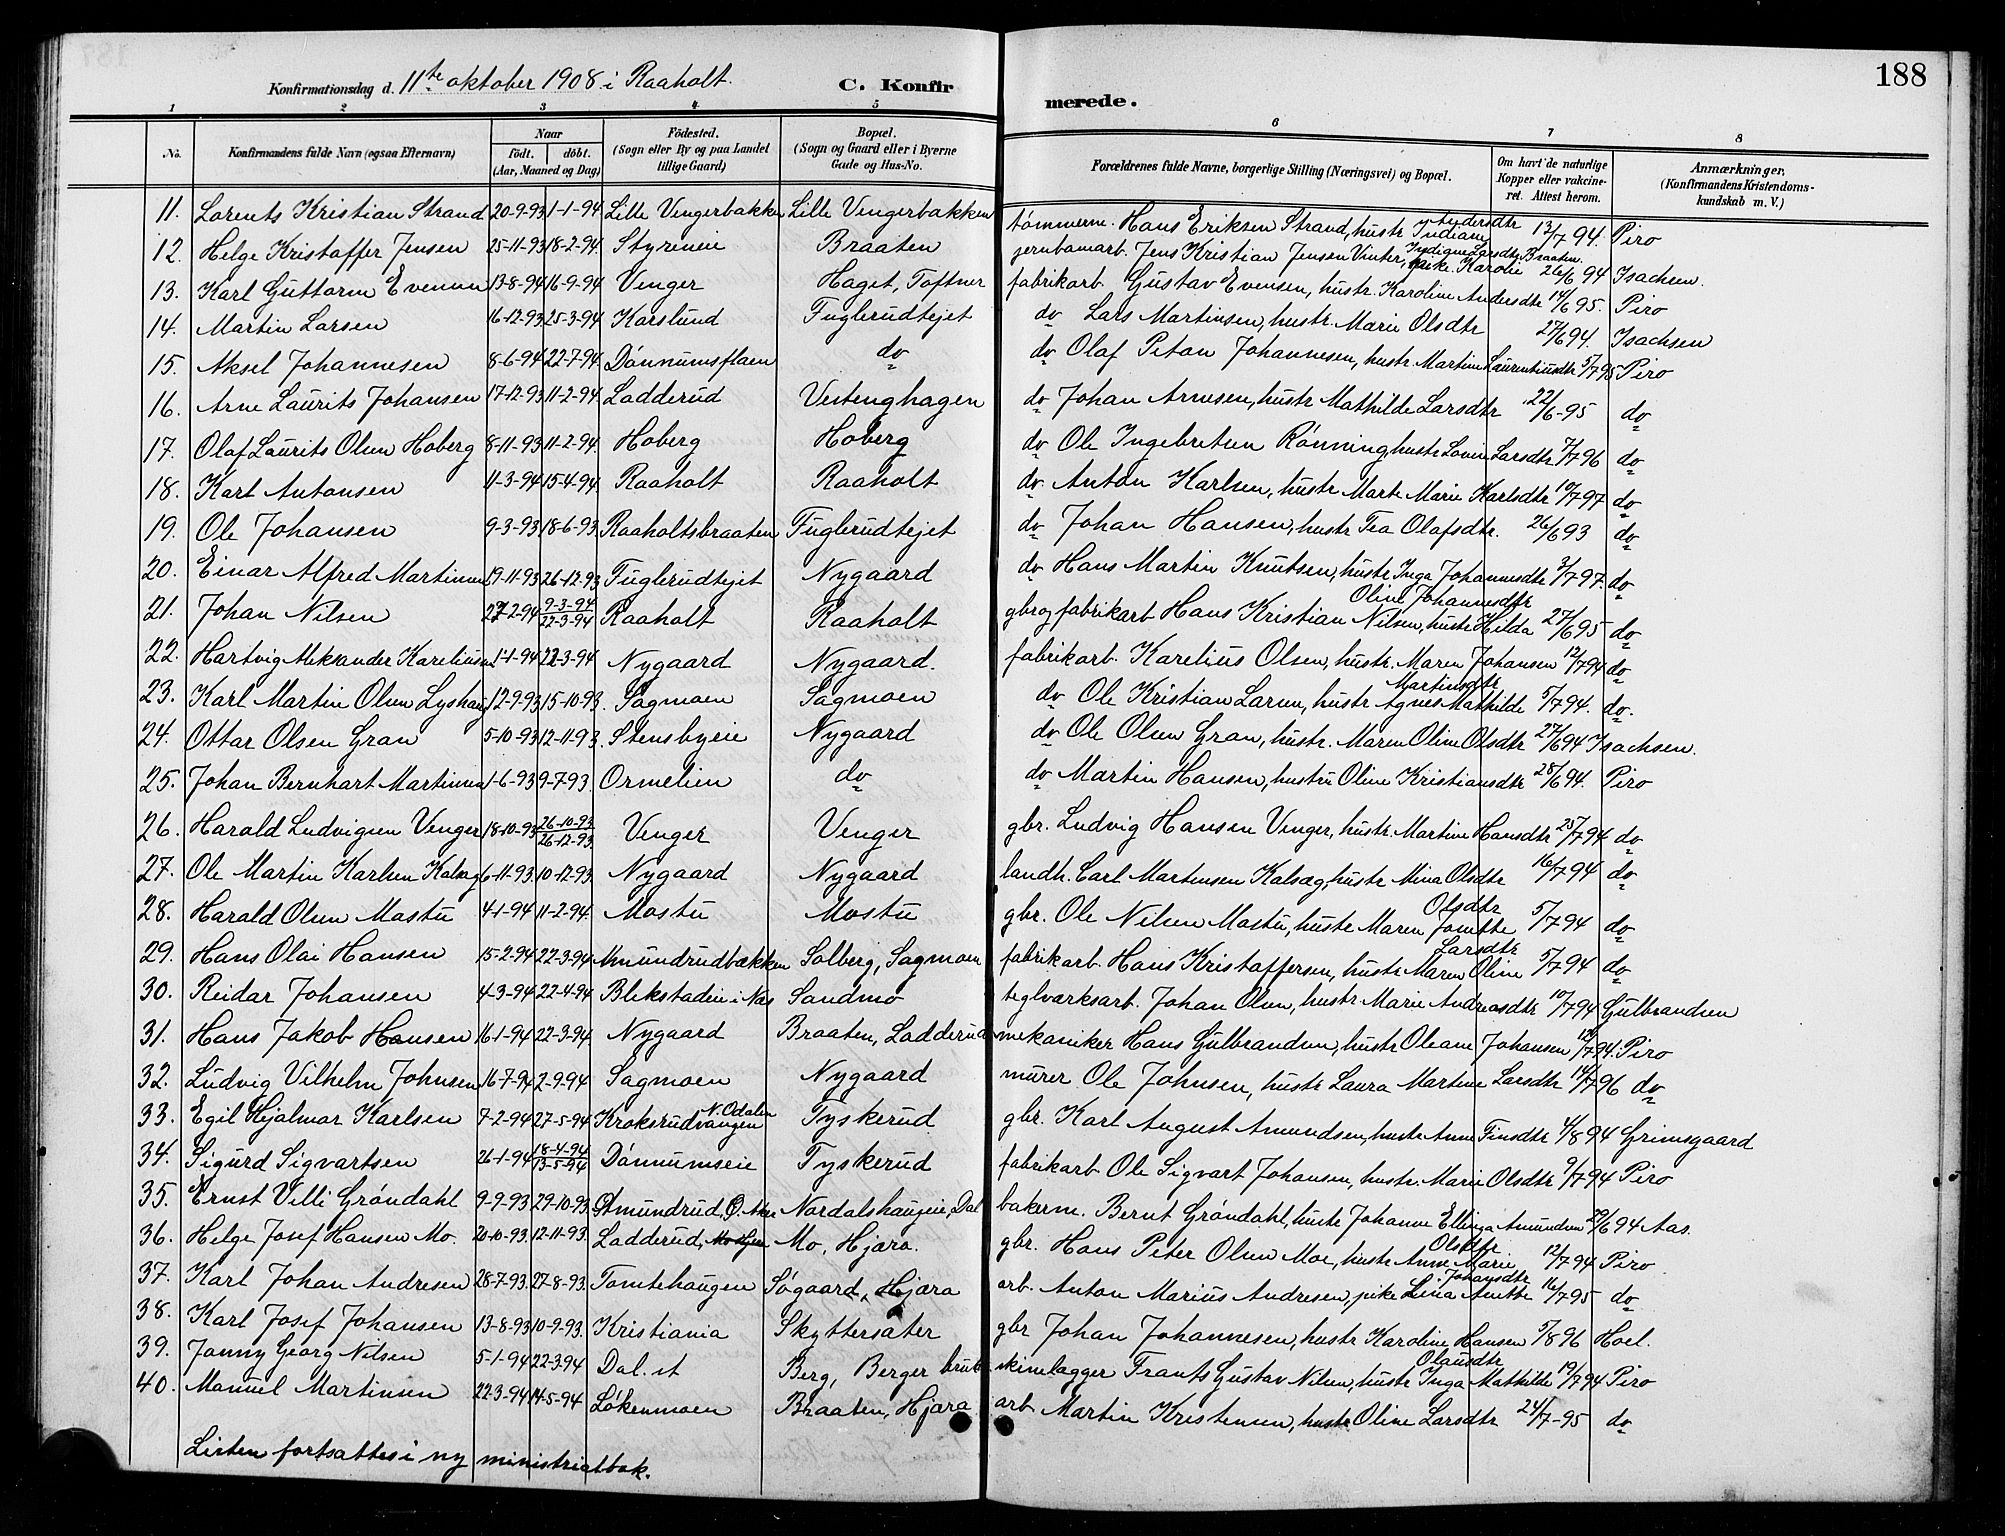 188
Konfirmationsdag d. 11te oktober 1908 i Raaholt. C. Konfirmerede.
1 2 3 4 5 6 7 8
No. Konfirmandens fulde Navn (ogsaa Efternavn) Naar født. døbt. (Aar, Maaned og Dag) Födested. (Sogn eller By og paa Landet tillige Gaard) Bopæl. (Sogn og Gaard eller i Byerne Gade og Hus-No. Forældrenes fulde Navne, borgerlige Stilling (Næringsvei) og Bopæl. Om havt de naturlige Kopper eller vakcineret. Attest herom. Anmærkninger. (Konfirmandens Kristendomskundskab m. V.)
11. Lorents Kristian Strand 20-9-93 1-1-94 Lille Vengerbakken Lille Vengerbakken tømmerm. Hans Eriksen Strand, hustr Indiane Andersdtr 13/7 94. Piro
12. Helge Kristaffer Jensen 25-11-93 18-2-94. Styreneie Braaten jernbanearb. Jens Kristian Jensen Vinter, Karolie Larsdtr Braaten. 26/6 94 Isachsen
13. Karl Guttorm Evensen 13-8-94 16-9-94 Venger Haget, Toftner fabrikarb. Gustav Evensen, hustr. Karoline Andersdtr 14/6 95. Piro
14. Martin Larsen 16-12-93 25-3-94 Karslund Fuglerudtejet do Lars Martinsen, hustr. Marie Olsdtr 27/6 94. Isachsen
15. Aksel Johannesen 8-6-94 22-7-94. Dønnumsflaen do do Olaf Petan Johannesen, hustr Martine Laurentiusdtr 5/7 95 Piro
16. Arne Laurits Johansen 17-12-93 11-2-94. Ladderud Vestenghagen do Johan Arnesen, hustr Mathilde Larsdtr 22/6-95 do
17. Olaf Laurits Olsen Hoberg 8-11-93 11-2-94. Hoberg Hoberg do Ole Ingebretsen Rønning, hustr Lovise Larsdtr 7/7 96 do
18. Karl Antonsen 11-3-94 15-4-94. Raaholt Raaholt do Anton Karlsen, hustr Marte Marie Karlsdtr 10/7 97 do
19. Ole Johansen 9-3-93 18-6-93. Raaholtsbraaten Fuglerudtejet do Johan Hansen, hustr Tea Olafsdtr. 26/6 93 do
20. Einar Alfred Martinsen 19-11-93 26-12-93 Fuglerudtejet Nygaard do Hans Martin Knutsen, hustr Inga Johannesdtr 3/7 97. do
21. Johan Nilsen 27-2-94 9-3-94 22-3-94 Raaholt Raaholt gbr og fabrikarb Hans Kristian Nilsen, hustr Hilda Oline Johannesdtr 27/6 95 do
22. Hartvig Aleksander Kareliusen 1-1-94 22-3-94 Nygaard Nygaard. fabrikarb. Karelius Olsen, hustr. Maren Johansen 12/7 94 do
23. Karl Martin Olsen Lyshaug 12-9-93 15-10-93. Sagmoen Sagmoen do Ole Kristian Larsen, hustr Agnes Mathilde Martinsdtr 5/7 94. do.
24. Ottar Olsen Gran 5-10-93 12-11-93. Stensbyeie Nygaard do Ole Olsen Gran, hustr. Maren Oline Olsdtr 27/6 94 Isachsen.
25. Johan Bernhart Martinsen 1-6-93 9-7-93. Ormelien do do Martin Hansen, hustru Oline Kristiansdtr 28/6 94. Piro
26. Harald Ludvigsen Venger 18-10-93 26-10-93 26-12-93. Venger Venger gbr. Ludvig Hansen Venger, hustr. Martine Hansdtr 25/7 94 do
27. Ole Martin Karlsen Kalsæg 6-11-93. 10-12-93. Nygaard Nygaard landh. Carl Martinsen Kalsæg, hustr Mina Olsdtr 16/7 94 do
28. Harald Olsen Mastu 4-1-94 11-2-94. Mostu Mostu gbr. Ole Nilsen Mastu, hustr Maren Olsdtr 5/7 94 do
29. Hans Olai Hansen 15-2-94 22-3-94 Amundrudbækken Solberg, Sagmoen fabrikarb. Hans Kristaffersen, hustr Maren Oline Larsdtr 5/7 94 do
30. Reidar Johansen 4-3-94 22-4-94 Blekstadeie i Næs Sandmo teglværksarb. Johan Olsen, hustr Marie Andreasdtr 10/7 94 Gulbrandsen
31. Hans Jakob Hansen 16-1-94 22-3-94. Nygaard Braaten, Ladderud mekaniker Hans Gulbrandsen, hustr Oleane Johansen 12/7 94. Piro
32. Ludvig Vilhelm Johnsen 16-7-94 2-9-94. Sagmoen Nygaard murer Ole Johnsen, hustr Laura Martine Larsdtr 14/7 96 do
33. Egil Hjalmar Karlsen 7-2-94 27-5-94 Kroksrudvangen N. Odalen Tyskerud gbr. Karl August Amundsen, hustr Anne Finsdtr 4/8 94 Grimsgaard
34. Sigurd Sigvartsen 26-1-94 18-4-94 13-5-94 Dønnumseie Tyskerud fabrikarb Ole Sigvart Johansen, hustr. Marie Olsdtr 9/7 94 Piro
35. Ernst Villi Grøndahl 9-9-93 29-10-93. Amundrud, Nordalshaugeie, Dal bakerm. Bernt Grøndahl, hustr Johanne Ellinga Amundsen 29/6 94 Aas.
36. Helge Josef Hansen Mo. 20-10-93. 12-11-93. Ladderud, Mo, Hjæra. gbr. Hans Peter Olsen Moe, hustr Anne Marie Olsdtr 12/7 94 Piro
37. Karl Johan Andresen 28-7-93. 27-8-93. Tomtehaugen Søgaard, Hjæra arb. Anton Marius Andresen, pike Lina Anette Johansdtr 16/7 95 do
38. Karl Josef Johansen 13-8-93 10-9-93. Kristiania Skyttersæter gbr Johan Johannesen, hustr Karoline Hansen 5/8 96 Hoel.
39. Jonny Georg Nilsen 5-1-94 22-3-94 Dal. st Berg, Berger bruk skinelægger Frants Gustav Nilsen, hustr Inga Mathilde Olausdtr 19/7 94 Piro
40. Manuel Martinsen 22-3-94 14-5-94 Løkenmoen Braaten, Hjæra arb. Martin Kristensen, hustr Oline Larsdtr 24/7-95 do
Listen fortsættes i ny ministrialbok.